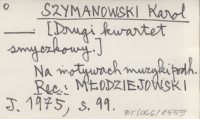 o
SZYMANOWSKI Karol
—— [Drugi kwartet
smyczkowy.]
Na motywach muzyki podh.
Rec.: MŁODZIEJOWSKI
J. 1975, s. 99.